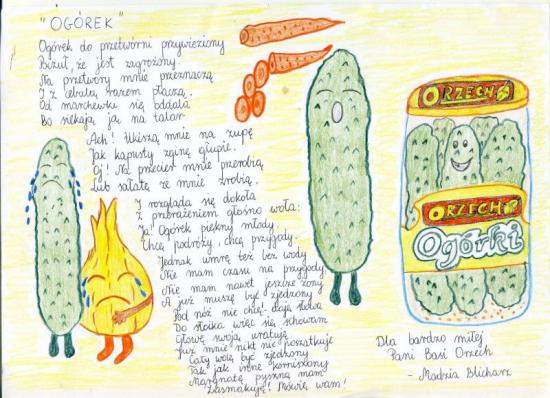 "OGÓREK"
Ogórek do przetwórni przywieziony
Bczuł, że jest zagrożony.
Na przetwory mnie przeznaczą
I z cebulą razem płaczą.
Od marchewki się oddala
Bo siekają ją na talar
Ach! Ukiszą mnie na zupę
Jak kapusty zginę głupie.
Oj! Na przecier mnie przerobią
Lub sałatę ze mnie zrobią.
I rozgląda się dokoła
Z przerażeniem głośno woła:
Ja! Ogórek piękny młody,
Chcę podróży, chcę przygody.
Jednak umrę też bez wody
Nie mam czasu na przygody,
Nie mam nawet jeszcze żony
A już muszę być zjedzony
Pod nóż nie chcę! daję słowo
Do słoika więc się schowam
Głowę swoją uratuję
Już mnie nikt nie poszatkuje
Cały wolę być zjedzony
Tak jak inne korniszony
Marynatę pyszną mam
Zasmakuję! Mówię wam!
ORZECH
ORZECH
Ogórki
Dla bardzo miłej
Pani Basi Orzech
- Madzia Blicharz